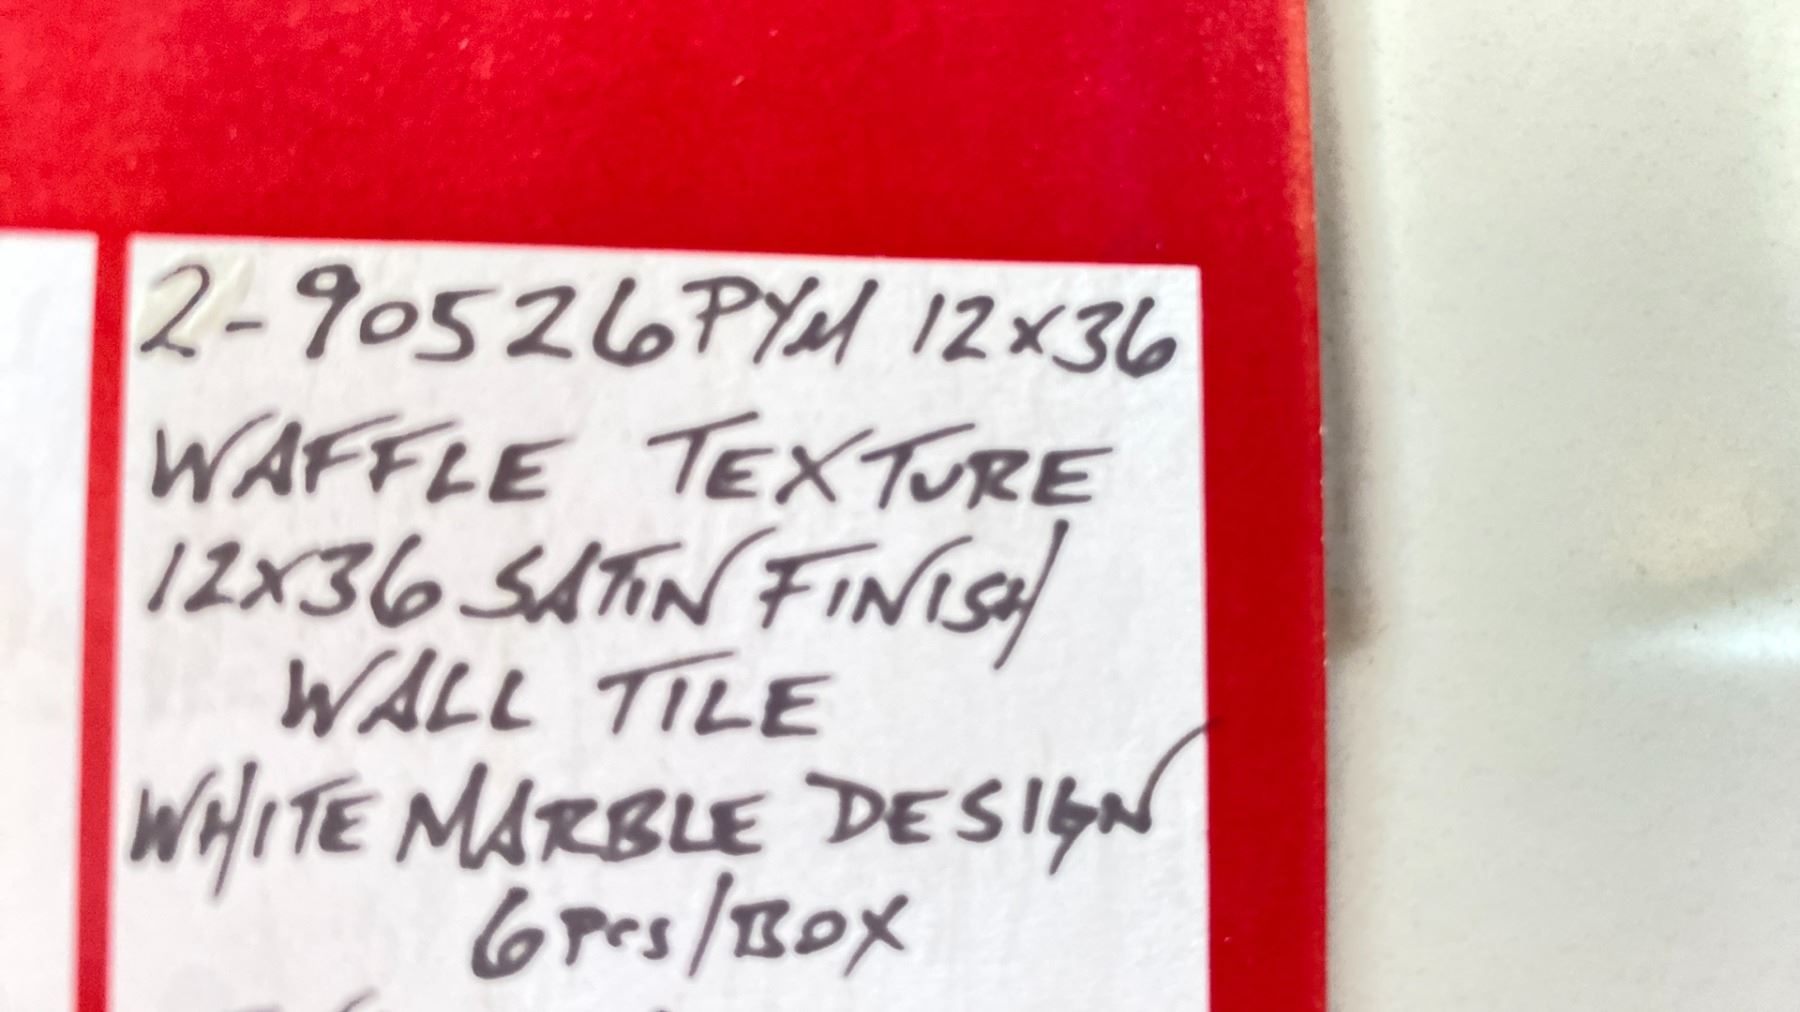 2-90526PYM 12x36
WAFFLE TEXTURE
12x36 SATIN FINISH
WALL TILE
WHITE MARBLE DESIGN
6 Pcs/BOX